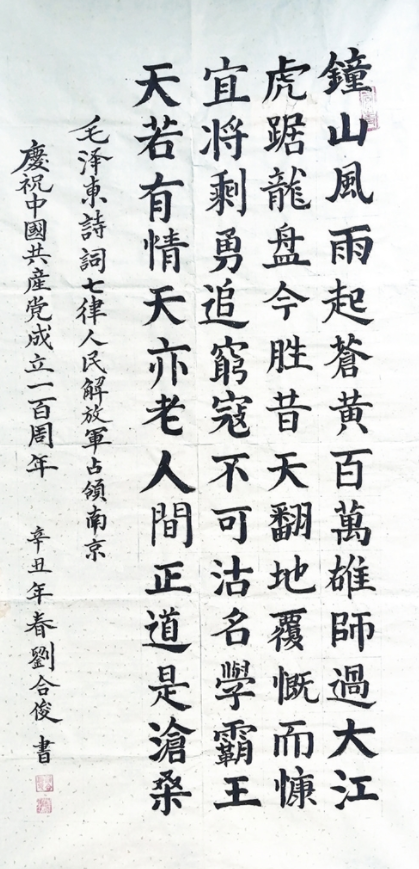 鐘山風雨起蒼黄百萬雄師過大江
虎踞龍盘今胜昔天翻地覆慨而慷
宜将剩勇追窮寇不可沽名學霸王
天若有情天亦老人間正道是滄桑
毛泽東詩詞七律人民解放軍占領南京
慶祝中國共産党成立一百周年 辛丑年春劉合俊書